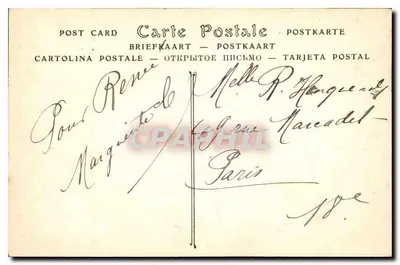 POST CARD Carte Postale POSTKARTE
BRIEFKAART — POSTKAART
CARTOLINA POSTALE — ОТКРЫТОЕ ПИСЬМО — TARJETA POSTAL
Pour Renée
Marguerite
Melle R.
rue Marcadet
Paris
18e